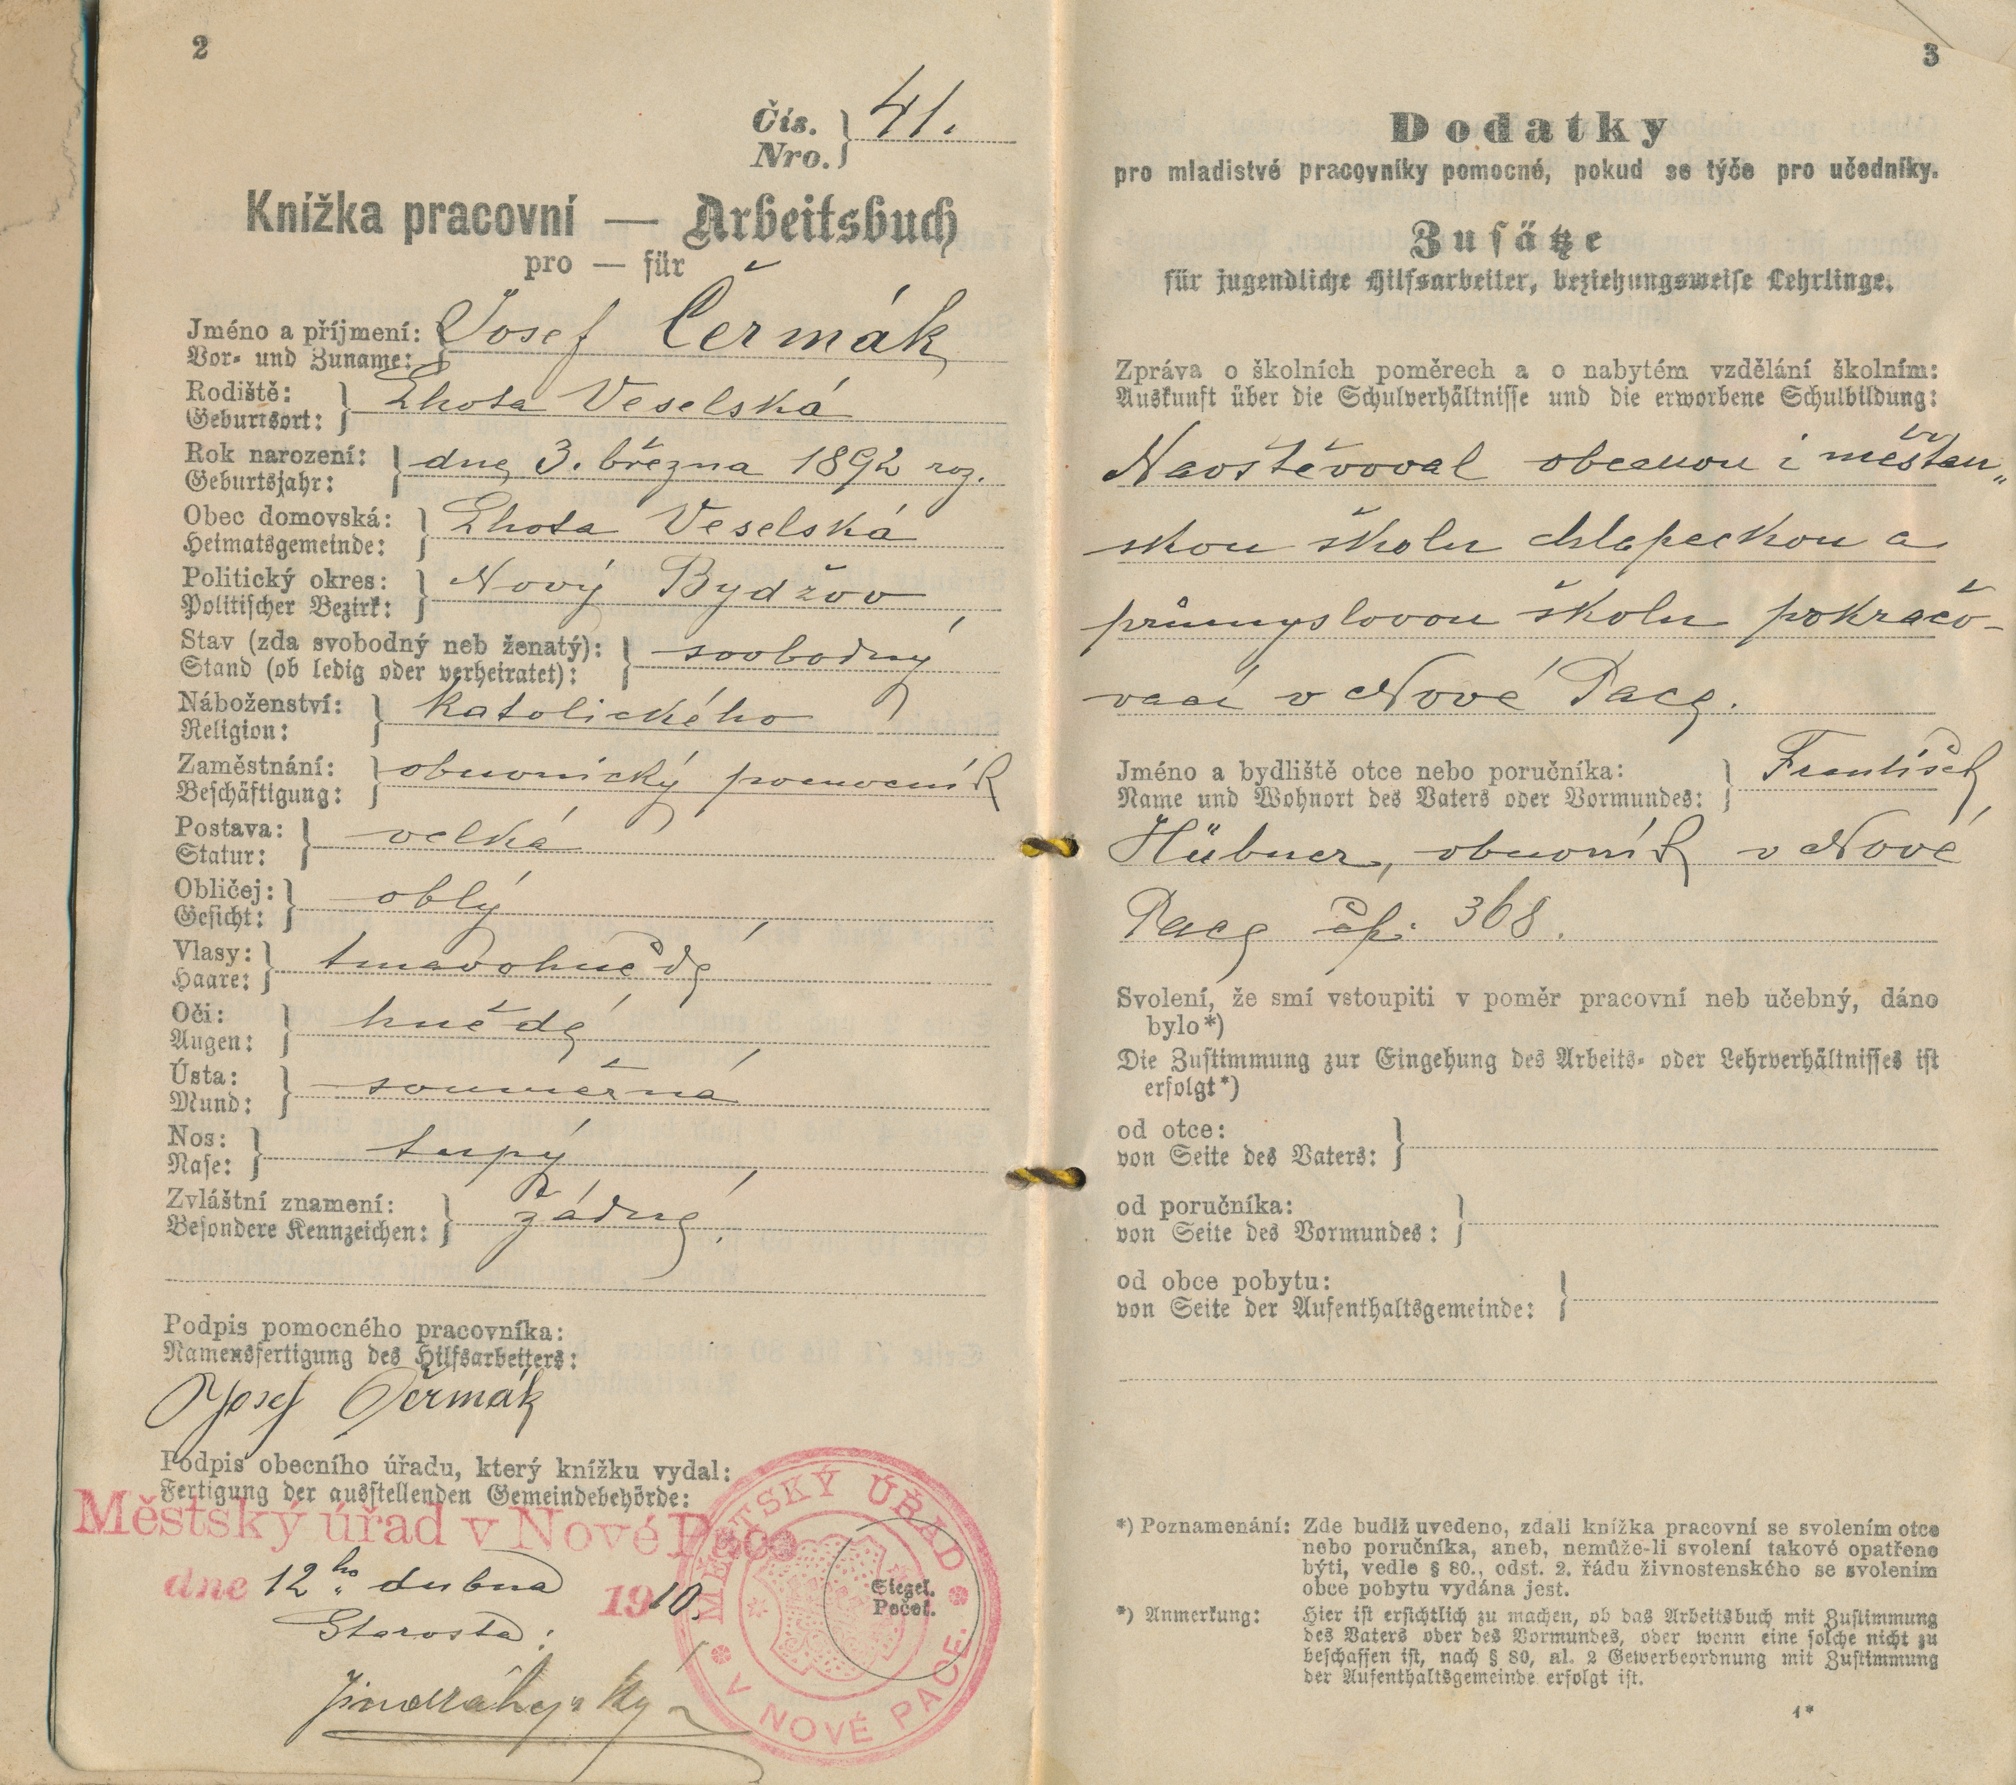 2
Čís.
Nro.
41.
Knížka pracovní — Arbeitsbuch
pro — für
Jméno a příjmení:
Vor- und Zuname:
Josef Čermák
Rodiště:
Geburtsort:
Lhota Veselská
Rok narození:
Geburtsjahr:
dne 3. března 1892 roz.
Obec domovská:
Heimatsgemeinde:
Lhota Veselská
Politický okres:
Politischer Bezirk:
Nový Bydžov
Stav (zda svobodný neb ženatý):
Stand (ob ledig oder verheiratet):
svobodný
Náboženství:
Religion:
katolického
Zaměstnání:
Beschäftigung:
obuvnický pomocník
Postava:
Statur:
velká
Obličej:
Gesicht:
oblý
Vlasy:
Haare:
tmavohnědé
Oči:
Augen:
hnědé
Ústa:
Mund:
souměrná
Nos:
Nase:
tupý
Zvláštní znamení:
Besondere Kennzeichen:
žádné.
Podpis pomocného pracovníka:
Namensfertigung des Hilfsarbeiters:
Josef Čermák
Podpis obecního úřadu, který knížku vydal:
Fertigung der ausstellenden Gemeindebehörde:
Městský úřad v Nové Pace
dne 12ho dubna 1910.
Starosta:
MĚSTSKÝ ÚŘAD V NOVÉ PACE.
Siegel.
Pečeť.
3
Dodatky
pro mladistvé pracovníky pomocné, pokud se týče pro učedníky.
Zusätze
für jugendliche Hilfsarbeiter, beziehungsweise Lehrlinge.
Zpráva o školních poměrech a o nabytém vzdělání školním:
Auskunft über die Schulverhältnisse und die erworbene Schulbildung:
Navštěvoval obecnou i měšťan„
skou školu chlapeckou a
průmyslovou školu pokračo-
vací v Nové Pace.
Jméno a bydliště otce nebo poručníka:
Name und Wohnort des Vaters oder Vormundes:
František
Hübner, obuvník v Nové
Pace čp. 368.
Svolení, že smí vstoupiti v poměr pracovní neb učebný, dáno
bylo*)
Die Zustimmung zur Eingehung des Arbeits- oder Lehrverhältnisses ist
erfolgt*)
od otce:
von Seite des Vaters:
od poručníka:
von Seite des Vormundes:
od obce pobytu:
von Seite der Aufenthaltsgemeinde:
*) Poznamenání: Zde budiž uvedeno, zdali knížka pracovní se svolením otce
nebo poručníka, aneb, nemůže-li svolení takové opatřeno
býti, vedle § 80., odst. 2. řádu živnostenského se svolením
obce pobytu vydána jest.
*) Anmerkung: Hier ist ersichtlich zu machen, ob das Arbeitsbuch mit Zustimmung
des Vaters oder des Vormundes, oder wenn eine solche nicht zu
beschaffen ist, nach § 80, al. 2 Gewerbeordnung mit Zustimmung
der Aufenthaltsgemeinde erfolgt ist.
1*